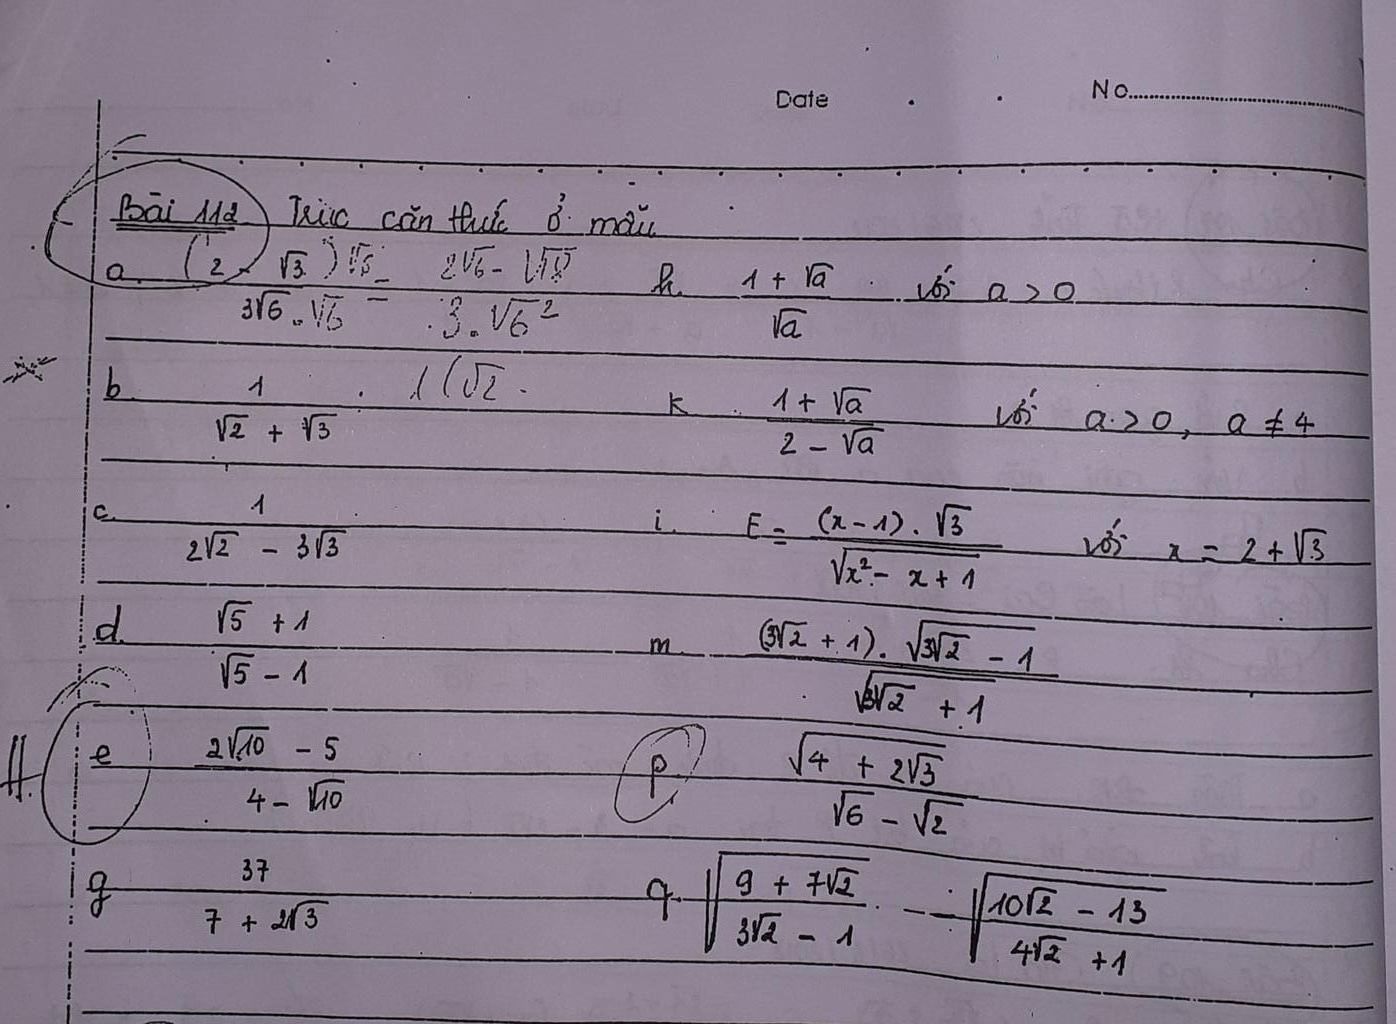 Date . . No
Bài 112 Trục căn thức ở mẫu
a. (2 - √3)√6 / 3√6 . √6 = 2√6 - √18 / 3 . √6² h. 1 + √a / √a với a > 0
b. 1 / √2 + √3 . 1(√2 - k. 1 + √a / 2 - √a với a > 0, a ≠ 4
c. 1 / 2√2 - 3√3 i. E = (x - 1) . √3 / √x² - x + 1 với x = 2 + √3
d. √5 + 1 / √5 - 1 m. (3√2 + 1) . √3√2 - 1 / √3√2 + 1
e 2√10 - 5 / 4 - √10 p. √4 + 2√3 / √6 - √2
g 37 / 7 + 2√3 q. √9 + 7√2 / 3√2 - 1 - √10√2 - 13 / 4√2 + 1